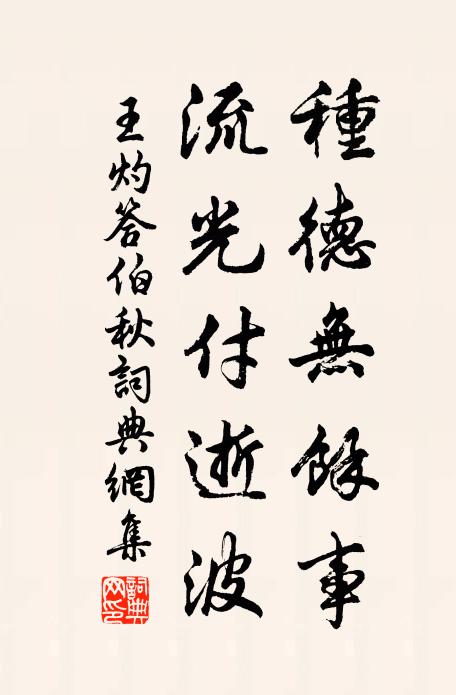 種德無餘事
流光付逝波
王灼答伯秋詞典網集
詞典網印